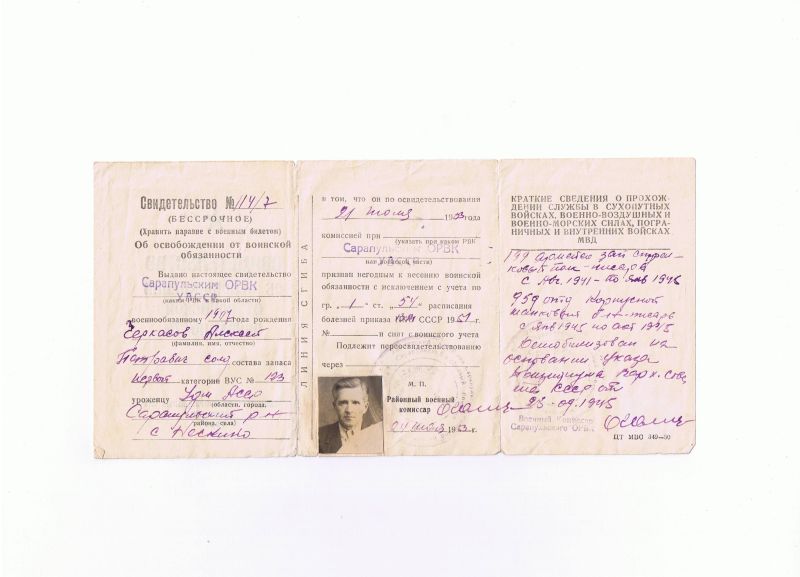 Свидетельство № 114/7
(БЕССРОЧНОЕ)
(Хранить наравне с военным билетом)
Об освобождении от воинской
обязанности
Выдано настоящее свидетельство
Сарапульским ОРВК
УАССР
(каким РВК и какой области)
военнообязанному 19 года рождения
Черкасов Алексей
(фамилия, имя, отчество)
Петрович солд состава запаса
первой категории ВУС № 123
уроженцу Удм АССР
(области, города,
Сарапульский р-н
района, села)
с
ЛИНИЯ СГИБА
в том, что он по освидетельствовании
21 июля 1953 года
комиссией при
(указать при каком РВК
Сарапульском ОРВК
или воинской части)
признан негодным к несению воинской
обязанности с исключением с учета по
гр. „1" ст. „54" расписания
болезней приказа СССР 1951 г.
№ и снят с воинского учета
Подлежит переосвидетельствованию
через
М. П.
Районный военный
комиссар
июля 1953 г.
КРАТКИЕ СВЕДЕНИЯ О ПРОХОЖ-
ДЕНИИ СЛУЖБЫ В СУХОПУТНЫХ
ВОЙСКАХ, ВОЕННО-ВОЗДУШНЫХ И
ВОЕННО-МОРСКИХ СИЛАХ, ПОГРАНИЧНЫХ И ВНУТРЕННИХ ВОЙСКАХ
МВД
199 зап стрел-
ковый полк - писарь
с Авг 1941 - по янв 1945
959 отд Корпусной
писарь
с янв 1945 по окт 1945
Демобилизован на
основании указа
Президиума Верх. Сове
та СССР от
25-09.1945
Военный Комиссар
Сарапульского ОРВК
ЦТ МВО 349-50